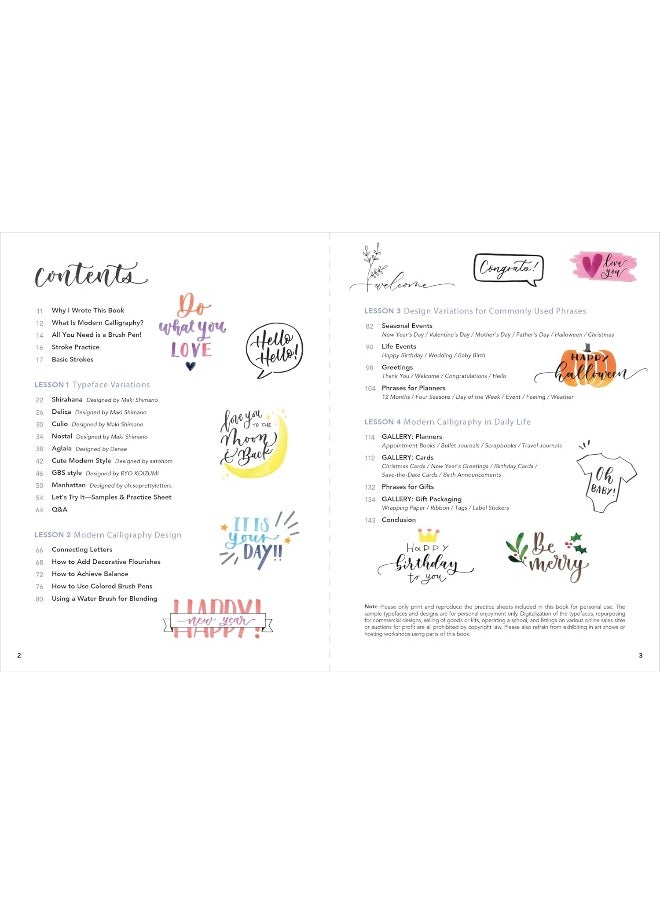 contents
11 Why I Wrote This Book
12 What Is Modern Calligraphy?
14 All You Need is a Brush Pen!
16 Stroke Practice
17 Basic Strokes
Do
what you
LOVE
Hello
Hello!
LESSON 1 Typeface Variations
22 Shirahana Designed by Maki Shimano
26 Delica Designed by Maki Shimano
30 Culio Designed by Maki Shimano
34 Nostal Designed by Maki Shimano
38 Aglaia Designed by Danae
42 Cute Modern Style Designed by satohom
46 GBS style Designed by RYO KOIZUMI
50 Manhattan Designed by oh.soprettyletters
54 Let's Try It—Samples & Practice Sheet
64 Q&A
love you
TO THE
Moon
& Back
LESSON 2 Modern Calligraphy Design
66 Connecting Letters
68 How to Add Decorative Flourishes
72 How to Achieve Balance
76 How to Use Colored Brush Pens
80 Using a Water Brush for Blending
IT IS
your
DAY!!
HAPPY
new year
HAPPY!
2
welcome
Congrats!
love
you
LESSON 3 Design Variations for Commonly Used Phrases
82 Seasonal Events
New Year's Day / Valentine's Day / Mother's Day / Father's Day / Halloween / Christmas
90 Life Events
Happy Birthday / Wedding / Baby Birth
98 Greetings
Thank You / Welcome / Congratulations / Hello
104 Phrases for Planners
12 Months / Four Seasons / Day of the Week / Event / Feeling / Weather
HAPPY
halloween
LESSON 4 Modern Calligraphy in Daily Life
114 GALLERY: Planners
Appointment Books / Bullet Journals / Scrapbooks / Travel Journals
112 GALLERY: Cards
Christmas Cards / New Year's Greetings / Birthday Cards /
Save-the-Date Cards / Birth Announcements
132 Phrases for Gifts
134 GALLERY: Gift Packaging
Wrapping Paper / Ribbon / Tags / Label Stickers
143 Conclusion
Oh
BABY!
HAPPY
birthday
to you
Be
merry
Note Please only print and reproduce the practice sheets included in this book for personal use. The
sample typefaces and designs are for personal enjoyment only. Digitalization of the typefaces, repurposing
for commercial designs, selling of goods or kits, operating a school, and listings on various online sales sites
or auctions for profit are all prohibited by copyright law. Please also refrain from exhibiting in art shows or
hosting workshops using parts of this book.
3